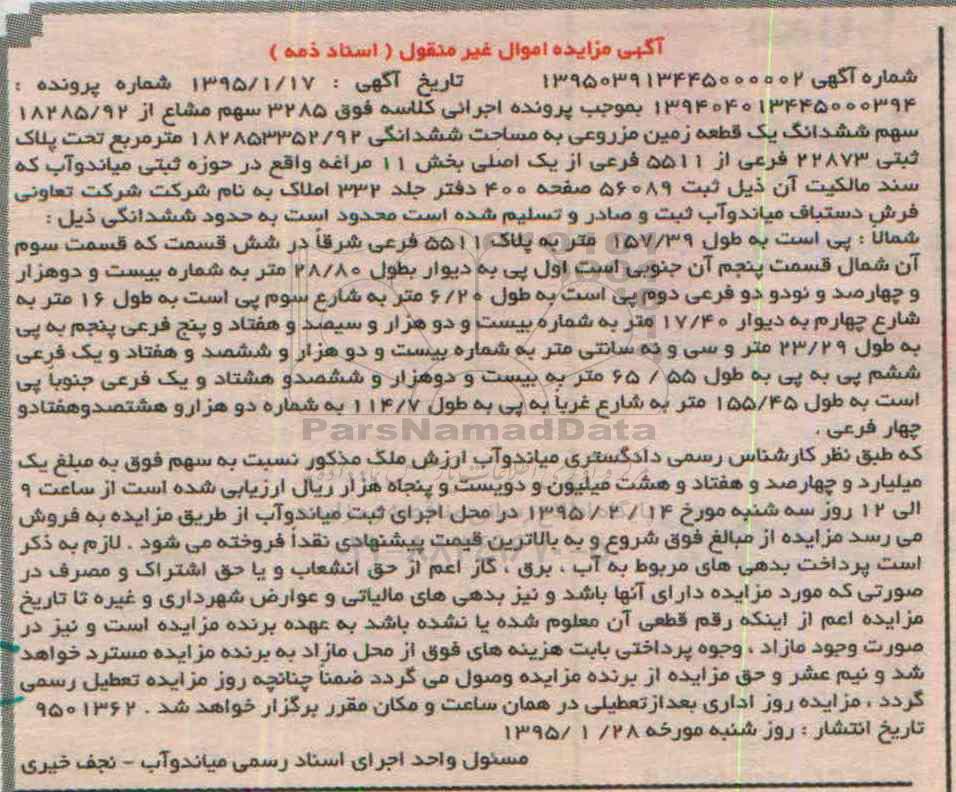 آگهی مزایده اموال غیر منقول ( اسناد ذمه )
شماره آگهی ۱۳۹۵۰۳۹۱۳۴۴۵۰۰۰۰۰۲ تاریخ آگهی : ۱۳۹۵/۱/۱۷ شماره پرونده :
۱۳۹۴۰۴۰۱۳۴۴۵۰۰۰۳۹۴ بموجب پرونده اجرائی کلاسه فوق ۳۲۸۵ سهم مشاع از ۱۸۲۸۵/۹۲
سهم ششدانگ یک قطعه زمین مزروعی به مساحت ششدانگی ۱۸۲۸۵۳۳۵۲/۹۲ مترمربع تحت پلاک
ثبتی ۲۲۸۷۳ فرعی از ۵۵۱۱ فرعی از یک اصلی بخش ۱۱ مراغه واقع در حوزه ثبتی میاندوآب که
سند مالکیت آن ذیل ثبت ۵۶۰۸۹ صفحه ۴۰۰ دفتر جلد ۳۳۲ املاک به نام شرکت شرکت تعاونی
فرش دستباف میاندوآب ثبت و صادر و تسلیم شده است محدود است به حدود ششدانگی ذیل :
شمالاً : پی است به طول ۱۵۷/۳۹ متر به پلاک ۵۵۱۱ فرعی شرقاً در شش قسمت که قسمت سوم
آن شمال قسمت پنجم آن جنوبی است اول پی به دیوار بطول ۲۸/۸۰ متر به شماره بیست و دوهزار
و چهارصد و نودو دو فرعی دوم پی است به طول ۶/۲۰ متر به شارع سوم پی است به طول ۱۶ متر به
شارع چهارم به دیوار ۱۷/۴۰ متر به شماره بیست و دو هزار و سیصد و هفتاد و پنج فرعی پنجم به پی
به طول ۲۳/۲۹ متر و سی و نه سانتی متر به شماره بیست و دو هزار و ششصد و هفتاد و یک فرعی
ششم پی به پی به طول ۵۵ / ۶۵ متر به بیست و دوهزار و ششصدو هشتاد و یک فرعی جنوباً پی
است به طول ۱۵۵/۴۵ متر به شارع غرباً به پی به طول ۱۱۴/۷ به شماره دو هزارو هشتصدوهفتادو
چهار فرعی .
ParsNamadData
که طبق نظر کارشناس رسمی دادگستری میاندوآب ارزش ملک مذکور نسبت به سهم فوق به مبلغ یک
میلیارد و چهارصد و هفتاد و هشت میلیون و دویست و پنجاه هزار ریال ارزیابی شده است از ساعت ۹
الی ۱۲ روز سه شنبه مورخ ۱۴ / ۲ / ۱۳۹۵ در محل اجرای ثبت میاندوآب از طریق مزایده به فروش
می رسد مزایده از مبالغ فوق شروع و به بالاترین قیمت پیشنهادی نقداً فروخته می شود . لازم به ذکر
است پرداخت بدهی های مربوط به آب ، برق ، گاز اعم از حق انشعاب و یا حق اشتراک و مصرف در
صورتی که مورد مزایده دارای آنها باشد و نیز بدهی های مالیاتی و عوارض شهرداری و غیره تا تاریخ
مزایده اعم از اینکه رقم قطعی آن معلوم شده یا نشده باشد به عهده برنده مزایده است و نیز در
صورت وجود مازاد ، وجوه پرداختی بابت هزینه های فوق از محل مازاد به برنده مزایده مسترد خواهد
شد و نیم عشر و حق مزایده از برنده مزایده وصول می گردد ضمناً چنانچه روز مزایده تعطیل رسمی
گردد ، مزایده روز اداری بعدازتعطیلی در همان ساعت و مکان مقرر برگزار خواهد شد . ۹۵۰۱۳۶۲
تاریخ انتشار : روز شنبه مورخه ۲۸/ ۱ /۱۳۹۵
مسئول واحد اجرای اسناد رسمی میاندوآب - نجف خیری